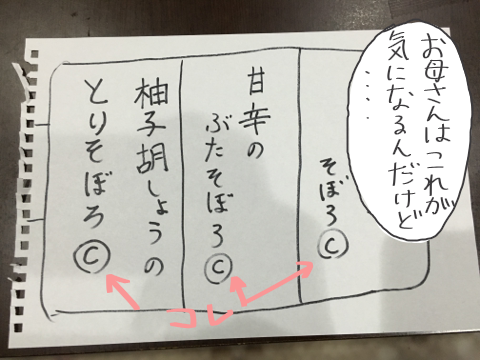 お母さんはこれが
気になるんだけど
‥‥
そぼろ©
甘辛の
ぶたそぼろ©
柚子胡しょうの
とりそぼろ©
コレ